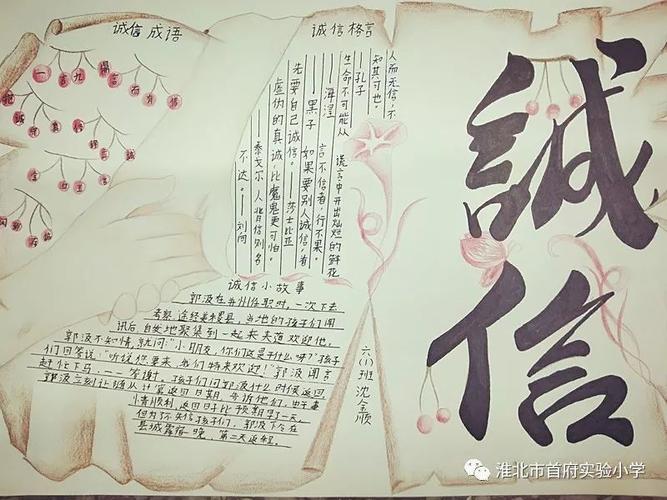 诚信成语
一言九鼎
言而有信
诚信格言
人而无信,不
知其可也。
——孔子
生命不可能从
谎言中开出灿烂的鲜花
——海涅
言不信者,行不果。
——黑子
如果要别人诚信,首
先要自己诚信。——莎士比亚
虚伪的真诚,比魔鬼更可怕。
——泰戈尔 人背信则名
不达。——刘向
诚信小故事
郭汲在并州任职时,一次下去
考察,途经美稷县,当地的孩子们闻
讯后自发地聚集到一起来夹道欢迎他,
郭汲不知情,就问:"小朋友,你们这是干什么呀?"孩子
们回答说:"听说您要来,我们特来欢迎!"郭汲闻言
赶忙下马,一一答谢。孩子们问郭汲什么时候返回
郭汲立刻让随从计算返回日期,告诉他们。由于事
情顺利,返回日子比预期早了一天。
但为了不失信孩子们,郭汲下令在
县城露宿一晚,第二天返程。
六(1)班沈金顺
誠
信
淮北市首府实验小学